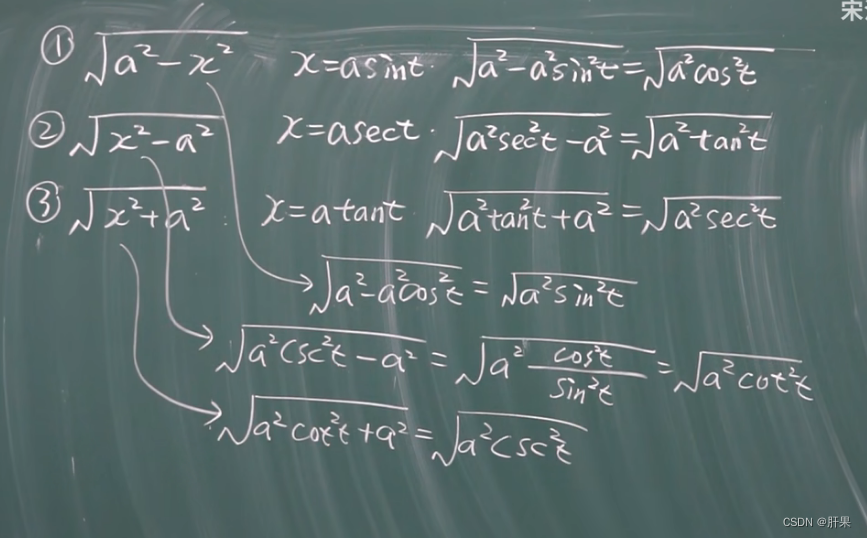 宋
① √(a²-x²) x=asint. √(a²-a²sin²t)=√(a²cos²t)
② √(x²-a²) x=asect. √(a²sec²t-a²)=√(a²tan²t)
③ √(x²+a²) x=atant √(a²tan²t+a²)=√(a²sec²t)
√(a²-a²cos²t)=√(a²sin²t)
√(a²csc²t-a²)=√(a² cos²t/sin²t)=√(a²cot²t)
√(a²cot²t+a²)=√(a²csc²t)
CSDN @肝果